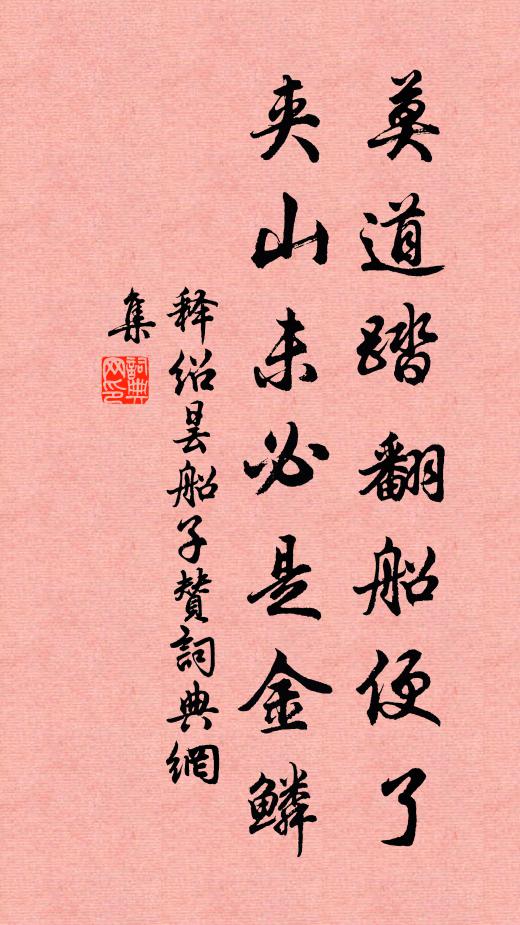 莫道踏翻船便了
夹山未必是金鳞
释绍昙船子赞詞典網
集
詞典
网印